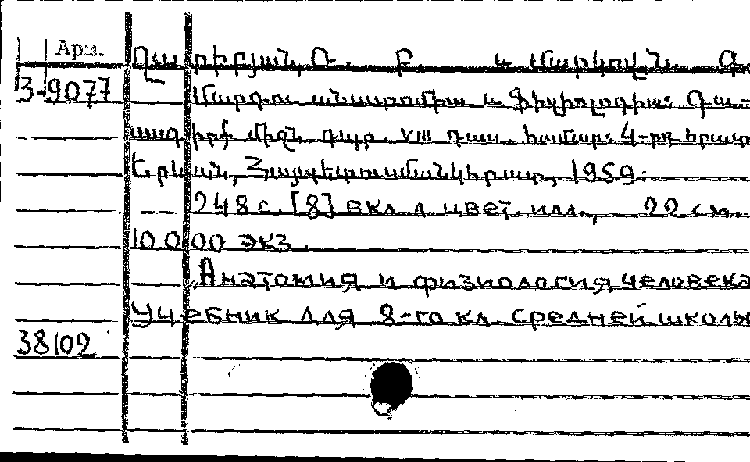 Арм.
Ղարիբյան, Ռ. Բ. և Մարկովն. Գ
3-9077 Մարդու անատոմիա և ֆիզիոլոգիա: Դա-
սագիրք միջն. դպր. VIII դաս. համար: 4-րդ հրատ
Երևան, Հայպետուսմանկհրատ, 1959.
248 с. [8] вкл. л. цвет. илл., 22 см.
10000 экз.
Анатомия и физиология человека
Учебник для 8-го кл. средней школы
38102